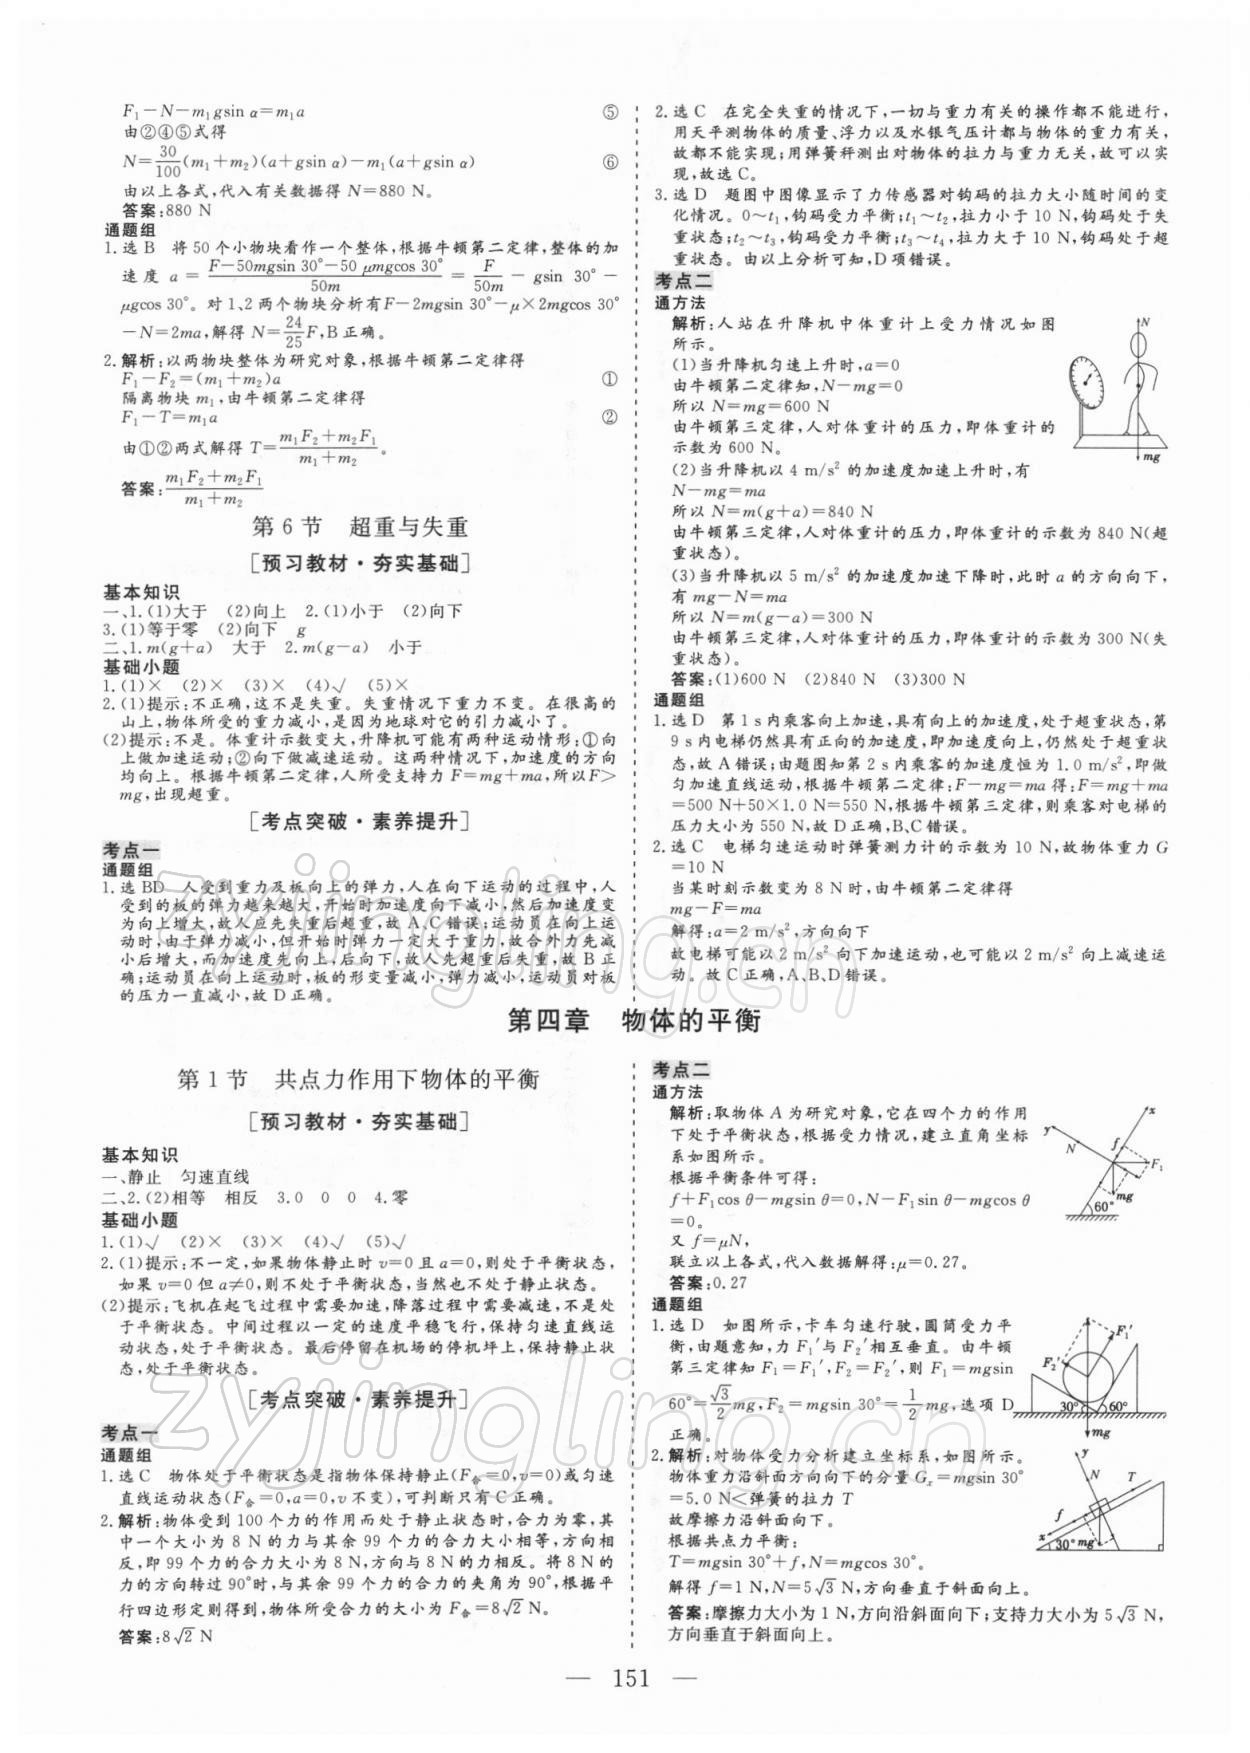 F₁－N－m₁gsin α＝m₁a ⑤
由②④⑤式得
N＝30/100(m₁＋m₂)(a＋gsin α)－m₁(a＋gsin α) ⑥
由以上各式,代入有关数据得 N＝880 N。
答案:880 N
通题组
1.选 B 将 50 个小物块看作一个整体,根据牛顿第二定律,整体的加
速度 a＝(F－50mgsin 30°－50 μmgcos 30°)/50m＝F/50m－gsin 30°－
μgcos 30°。对 1、2 两个物块分析有F－2mgsin 30°－μ×2mgcos 30°
－N＝2ma,解得 N＝24/25F,B 正确。
2.解析:以两物块整体为研究对象,根据牛顿第二定律得
F₁－F₂＝(m₁＋m₂)a ①
隔离物块 m₁,由牛顿第二定律得
F₁－T＝m₁a ②
由①②两式解得 T＝(m₁F₂＋m₂F₁)/(m₁＋m₂)。
答案:(m₁F₂＋m₂F₁)/(m₁＋m₂)
第 6 节 超重与失重
[预习教材·夯实基础]
基本知识
一、1.(1)大于 (2)向上 2.(1)小于 (2)向下
3.(1)等于零 (2)向下 g
二、1.m(g＋a) 大于 2.m(g－a) 小于
基础小题
1.(1)× (2)× (3)× (4)√ (5)×
2.(1)提示:不正确,这不是失重。失重情况下重力不变。在很高的
山上,物体所受的重力减小,是因为地球对它的引力减小了。
(2)提示:不是。体重计示数变大,升降机可能有两种运动情形:①向
上做加速运动;②向下做减速运动。这两种情况下,加速度的方向
均向上。根据牛顿第二定律,人所受支持力 F＝mg＋ma,所以F＞
mg,出现超重。
[考点突破·素养提升]
考点一
通题组
1.选 BD 人受到重力及板向上的弹力,人在向下运动的过程中,人
受到的板的弹力越来越大,开始时加速度向下减小,然后加速度变
为向上增大,故人应先失重后超重,故 A、C 错误;运动员在向上运
动时,由于弹力减小,但开始时弹力一定大于重力,故合外力先减
小后增大,而加速度先向上,后向下,故人先超重后失重,故 B 正
确;运动员在向上运动时,板的形变量减小,弹力减小,运动员对板
的压力一直减小,故 D 正确。
2.选 C 在完全失重的情况下,一切与重力有关的操作都不能进行,
用天平测物体的质量、浮力以及水银气压计都与物体的重力有关,
故都不能实现;用弹簧秤测出对物体的拉力与重力无关,故可以实
现,故选 C。
3.选 D 题图中图像显示了力传感器对钩码的拉力大小随时间的变
化情况。0～t₁,钩码受力平衡;t₁～t₂,拉力小于 10 N,钩码处于失
重状态;t₂～t₃,钩码受力平衡;t₃～t₄,拉力大于 10 N,钩码处于超
重状态。由以上分析可知,D 项错误。
考点二
通方法
解析:人站在升降机中体重计上受力情况如图
所示。
(1)当升降机匀速上升时,a＝0
由牛顿第二定律知,N－mg＝0
所以 N＝mg＝600 N
由牛顿第三定律,人对体重计的压力,即体重计的
示数为 600 N。
(2)当升降机以 4 m/s² 的加速度加速上升时,有
N－mg＝ma
所以 N＝m(g＋a)＝840 N
由牛顿第三定律,人对体重计的压力,即体重计的示数为 840 N(超
重状态)。
(3)当升降机以 5 m/s² 的加速度加速下降时,此时 a 的方向向下,
有 mg－N＝ma
所以 N＝m(g－a)＝300 N
由牛顿第三定律,人对体重计的压力,即体重计的示数为 300 N(失
重状态)。
答案:(1)600 N (2)840 N (3)300 N
N
mg
通题组
1.选 D 第 1 s内乘客向上加速,具有向上的加速度,处于超重状态,第
9 s内电梯仍然具有正向的加速度,即加速度向上,仍然处于超重状
态,故 A 错误;由题图知第 2 s内乘客的加速度恒为 1.0 m/s²,即做
匀加速直线运动,根据牛顿第二定律:F－mg＝ma 得:F＝mg＋ma
＝500 N＋50×1.0 N＝550 N,根据牛顿第三定律,则乘客对电梯的
压力大小为 550 N,故 D 正确,B、C 错误。
2.选 C 电梯匀速运动时弹簧测力计的示数为 10 N,故物体重力 G
＝10 N
当某时刻示数变为 8 N 时,由牛顿第二定律得
mg－F＝ma
解得:a＝2 m/s²,方向向下
故电梯可能以 2 m/s² 向下加速运动,也可能以 2 m/s² 向上减速运
动。故 C 正确,A、B、D 错误。
第四章 物体的平衡
第 1 节 共点力作用下物体的平衡
[预习教材·夯实基础]
基本知识
一、静止 匀速直线
二、2.(2)相等 相反 3.0 0 0 4.零
基础小题
1.(1)√ (2)× (3)× (4)√ (5)√
2.(1)提示:不一定,如果物体静止时 v＝0 且 a＝0,则处于平衡状态,
如果 v＝0 但 a≠0,则不处于平衡状态,当然也不处于静止状态。
(2)提示:飞机在起飞过程中需要加速,降落过程中需要减速,不是处
于平衡状态。中间过程以一定的速度平稳飞行,保持匀速直线运
动状态,处于平衡状态。最后停留在机场的停机坪上,保持静止状
态,处于平衡状态。
[考点突破·素养提升]
考点一
通题组
1.选 C 物体处于平衡状态是指物体保持静止(F合＝0,v＝0)或匀速
直线运动状态(F合＝0,a＝0,v 不变),可判断只有 C 正确。
2.解析:物体受到 100 个力的作用而处于静止状态时,合力为零,其
中一个大小为 8 N 的力与其余 99 个力的合力大小相等,方向相
反,即 99 个力的合力大小为 8 N,方向与 8 N的力相反。将 8 N的
力的方向转过 90°时,与其余 99 个力的合力的夹角为 90°,根据平
行四边形定则得到,物体所受合力的大小为 F合＝8√2 N。
答案:8√2 N
考点二
通方法
解析:取物体 A 为研究对象,它在四个力的作用
下处于平衡状态,根据受力情况,建立直角坐标
系如图所示。
根据平衡条件可得:
f＋F₁cos θ－mgsin θ＝0,N－F₁sin θ－mgcos θ
＝0。
又 f＝μN,
联立以上各式,代入数据解得:μ＝0.27。
答案:0.27
x
y
N
f
F₁
mg
60°
通题组
1.选 D 如图所示,卡车匀速行驶,圆筒受力平
衡,由题意知,力 F₁′与 F₂′相互垂直。由牛顿
第三定律知 F₁＝F₁′,F₂＝F₂′,则 F₁＝mgsin
60°＝√3/2mg,F₂＝mgsin 30°＝1/2mg,选项 D
正确。
F₁′
F₂′
30°
60°
mg
2.解析:对物体受力分析建立坐标系,如图所示。
物体重力沿斜面方向向下的分量 Gₓ＝mgsin 30°
＝5.0 N＜弹簧的拉力 T
故摩擦力沿斜面向下。
根据共点力平衡:
T＝mgsin 30°＋f,N＝mgcos 30°。
解得 f＝1 N,N＝5√3 N,方向垂直于斜面向上。
答案:摩擦力大小为 1 N,方向沿斜面向下;支持力大小为 5√3 N,
方向垂直于斜面向上。
y
N
T
f
x
30°
mg
— 151 —
zyjingling.cn
zyjingling.cn